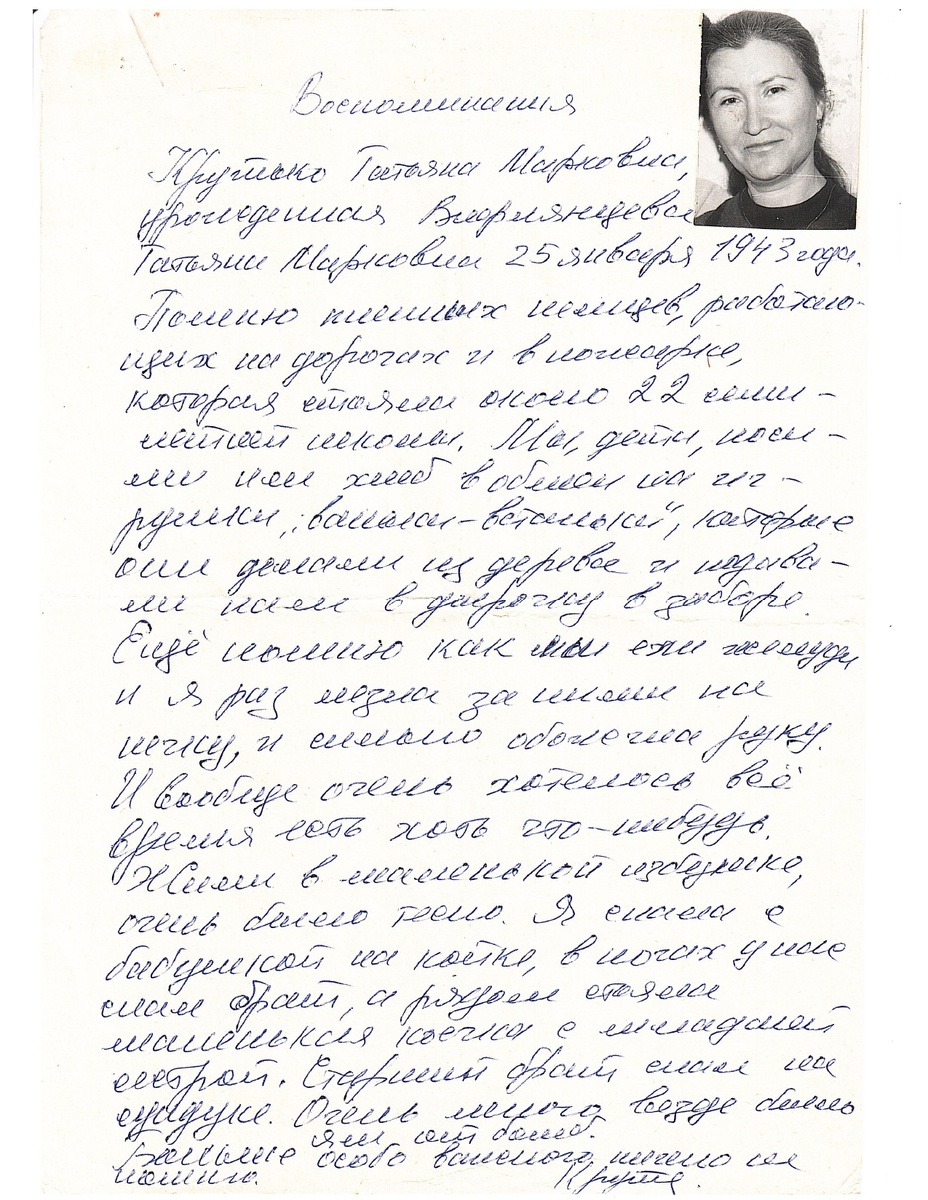 Воспоминания
Крутько Татьяна Марковна,
урожденная
Татьяна Марковна 25 января 1943 года.
Помню пленных немцев, работаю-
щих на дорогах и в пожарке,
которая стояла около 22 семи-
летней школы. Мы, дети, носи-
ли им хлеб в обмен на иг-
рушки „ваньки-встаньки", которые
они делали из дерева и подава-
ли нам в дырочку в заборе.
Ещё помню как мы ели жёлуди
и я раз лезла за ними на
печку, и сильно обожгла руку.
И вообще очень хотелось всё
время есть хоть что-нибудь.
Жили в маленькой избушке,
очень было тесно. Я спала с
бабушкой на койке, в ногах у нас
спал брат, а рядом стояла
маленькая коечка с младшей
сестрой. Старший брат спал на
сундуке. Очень много везде было
ям от бомб.
Больше особо важного ничего не
помню.